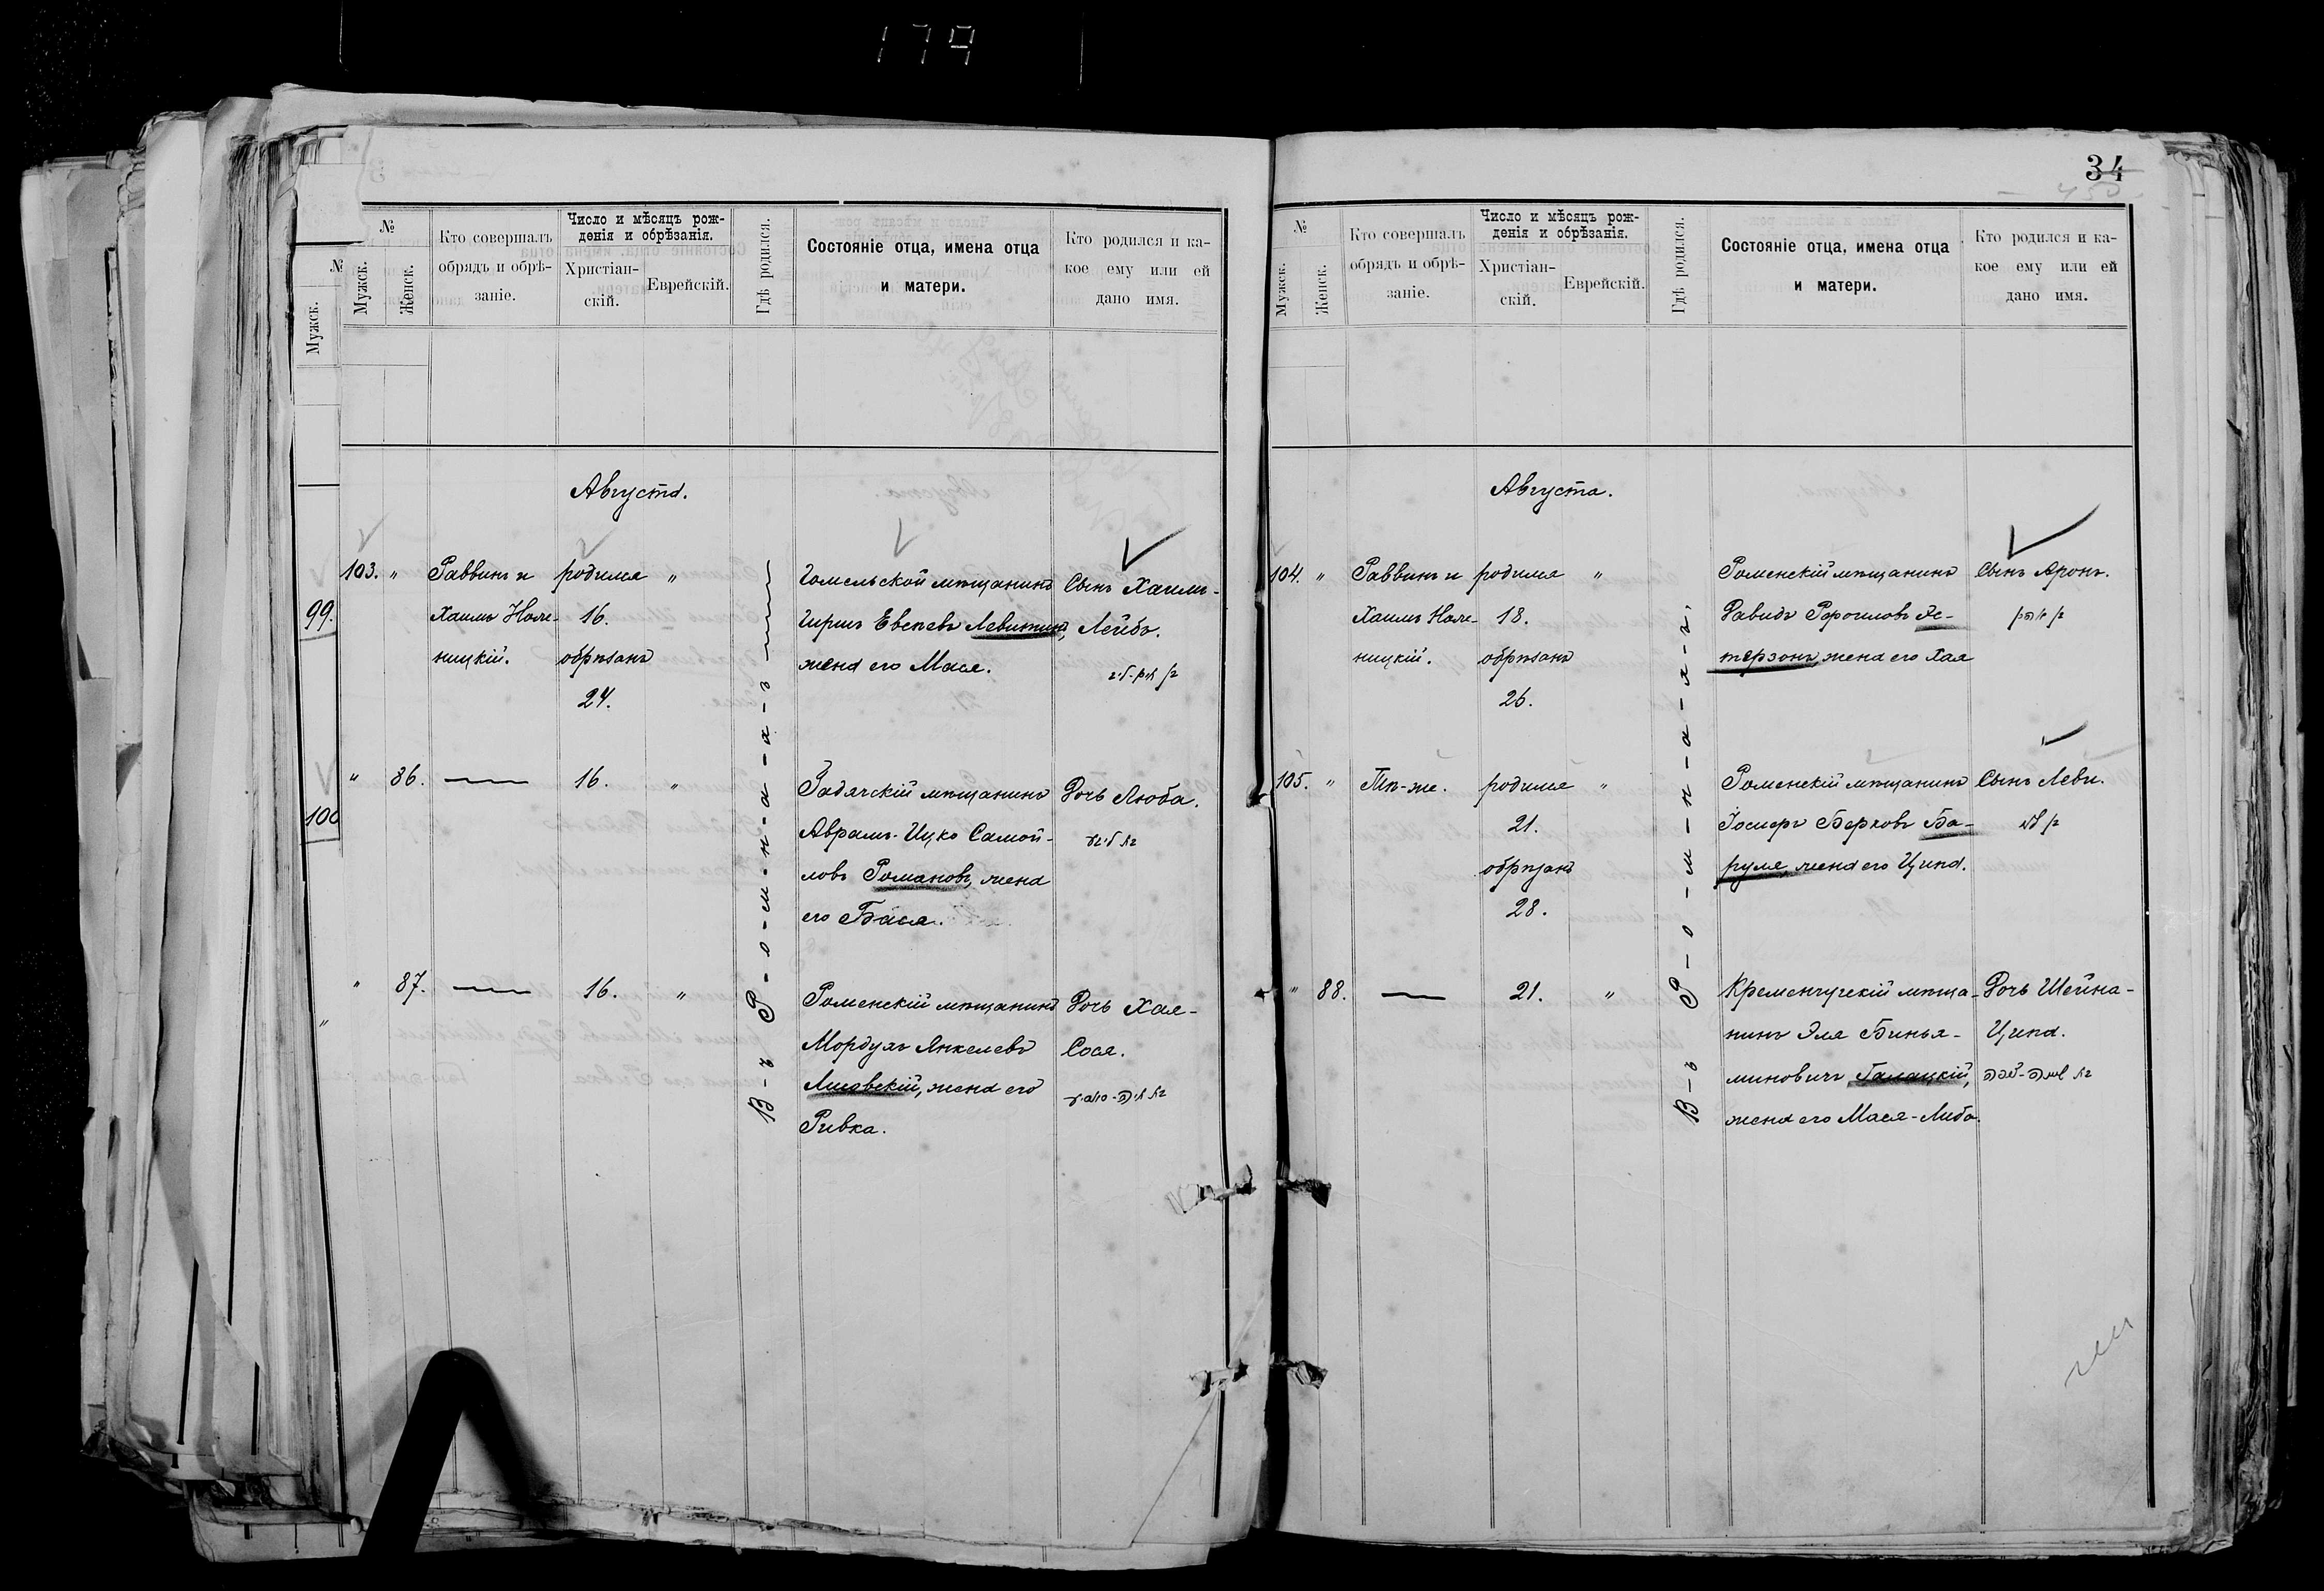 179
34
№
Мужск.
99.
100
"
№
Мужск.
Женск.
Кто совершалъ
обрядъ и обрѣ-
заніе.
Число и мѣсяцъ рож-
денія и обрѣзанія.
Христіан-
скій.
Еврейскій.
Гдѣ родился.
Состояніе отца, имена отца
и матери.
Кто родился и ка-
кое ему или ей
дано имя.
Августа.
103. "
Раввинъ и
Хаимъ
ницкій.
родился "
16.
обрѣзанъ
24.
Гомельской мѣщанинъ
Гиршъ Евелевъ Левитинъ,
жена его Мася.
Сынъ Хаимъ-
Лейбъ.
" 86.
16. "
Гадячскій мѣщанинъ
Аврамъ-Ицко Самой-
ловъ Романовъ, жена
его Бася.
Дочь Люба.
" 87.
16. "
Роменскій мѣщанинъ
Мордухъ Янкелевъ
жена его
Ривка.
Дочь Хая-
Сося.
В-ъ Р-о-м-н-а-а-ъ
№
Мужск.
Женск.
Кто совершалъ
обрядъ и обрѣ-
заніе.
Число и мѣсяцъ рож-
денія и обрѣзанія.
Христіан-
скій.
Еврейскій.
Гдѣ родился.
Состояніе отца, имена отца
и матери.
Кто родился и ка-
кое ему или ей
дано имя.
Августа.
104. "
Раввинъ и
Хаимъ
ницкій.
родился "
18.
обрѣзанъ
26.
Роменскій мѣщанинъ
Давидъ
жена его Хая
Сынъ Аронъ.
105. "
Тѣ-же.
родился "
21.
обрѣзанъ
28.
Роменскій мѣщанинъ
Іосифъ Берковъ Ба-
руля, жена его Ципа.
Сынъ Леви.
" 88.
21. "
Кременчугскій мѣща-
нинъ Эля Бинья-
миновичъ Галацкій,
жена его Мася-Либа.
Дочь Шейна-
Ципа.